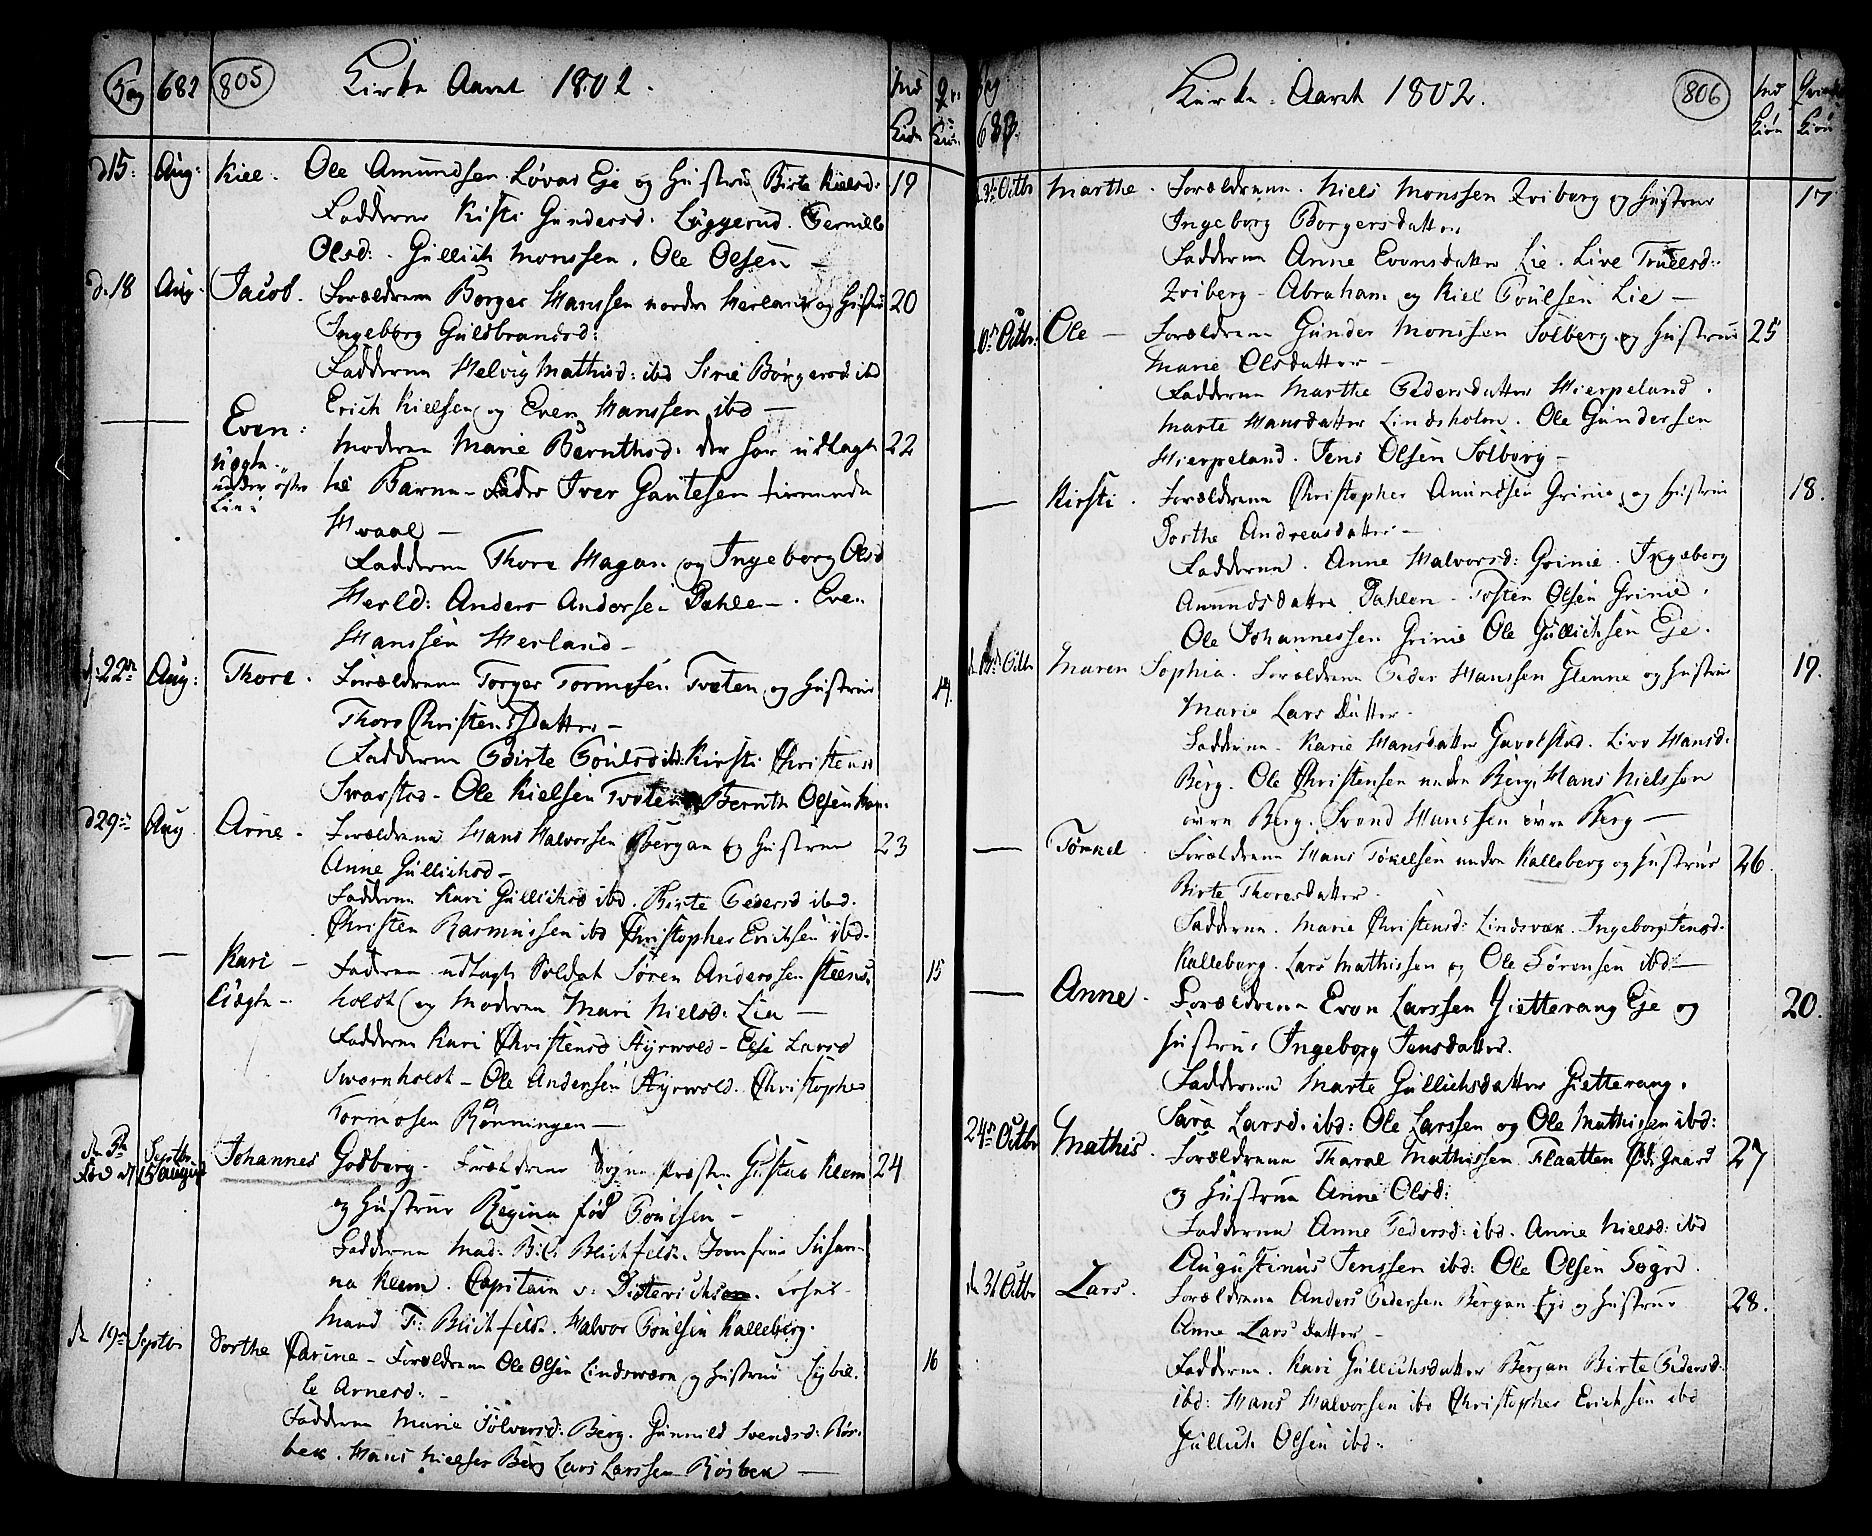 Pag 682 805 Kirke Aaret 1802. Mand Kiøn Qv. Kiøn
d. 15: Aug: Kiel. Ole Amundsen Løvas Eje og Hustru Birte Kielsd: 19
Fadderne Kisti Gundersd. Pernille
Olsd: Gullich Monssen. Ole Olsen —
d. 18 Aug. Jacob. Forældrene Borger Hanssen nordre Herland og Hustru 20
Ingeborg Guldbrandsd:
Fadderne Helvig Mathisd: ibd Sirie Borgersd: ibd
Erich Kielsen og Even Hanssen ibd —
— Even: Moderen Marie Bernthsd. der har udlagt 22
Uægte
under østre
Lie:
til Barne-Fader Iver Gautesen
Hvaal —
Fadderne Thore Hagan og Ingeborg Olsd
Herld: Anders Andersen Dahle — Even
Hanssen Herland —
d. 22de Aug: Thore. Forældrene Torger Tormosen Tveten og Hustrue 14.
Thore Christensdatter —
Fadderne Birte Poulsd ibd: Kirsti Christensd
Svarstad — Ole Kielsen Tveten Bernth Olsen
d 29de Aug Arne. Forældrene Hans Halvorsen Bergan og Hustrue 23
Anne Gullichsd —
Fadderne Kari Gullichsd ibd. Birte Pedersd ibd.
Christen Rasmussen ibd Christopher Erichsen ibd.
— — Kari — Faderen udlagt Soldat Søren Anderssen Steens- 15
Uægte — holdt og Moderen Mari Nielsd: Lie —
Fadderne Kari Christensd Styrvold — Elsie Larsd
Svarnholdt — Ole Andersen Styrvold. Christopher
Tormosen Rønningen —
d. 5te Septbr Johannes Godberg. Forældrene Sogne Præsten Gustav Klem 24
Fød d. 15 August
og Hustrue Regina fød Poulsen —
Fadderne Mad: Blichfeldt. Jomfrue Susan-
na Klem. Capitain v: Ditterichsen.
Mand F: Blichfeldt. Halvor Poulsen Kalleberg.
d. 19de Septbr Dorthe Carine — Forældrene Ole Olsen Lindsværn og Hustrue Sybil- 16
le Arnesd: —
Fadderne Marie Sølversd: Berg. Gunnild Svendsd: Røs-
bek. Hans Nielsen Berg Lars Larssen Røsbek —
Pag 683. Kirke-Aaret 1802. 806 Mand Kiøn Qvinde Kiøn
d. 3de Octbr Marthe. Forældrene. Niels Monssen Zviberg og Hustrue 17
Ingeborg Borgersdatter
Fadderne Anne Evensdatter Lie. Live Truelsd:
Zviberg — Abraham og Kiel Poulsen Lie —
10de Octbr. Ole — Forældrene Gunder Monssen Solberg og Hustrue 25
Marie Olsdatter —
Fadderne Marthe Pedersdatter Hierpeland.
Marte Hansdatter Lindsholm. Ole Gundersen
Hierpeland. Jens Olsen Solberg —
— Kirsti. Forældrene Christopher Amundsen Grinie og Hustrue 18.
Dorthe Andreasdatter —
Fadderne. Anne Halvorsd: Grinie. Ingeborg
Amundsdatter Dahlen — Tosten Olsen Grinie.
Ole Johannessen Grinie Ole Gullichsen Eje.
Octbr Maren Sophia. Forældrene Peder Hanssen Glenne og Hustrue 19.
Marie Larsdatter.
Fadderne. Karie Hansdatter Gavelstad. Live Hansd:
Berg. Ole Christensen nedre Berg. Hans Nielssen
øvre Berg. Svend Hanssen øvre Berg —
— Tørkel. Forældrene Hans Tørkelsen nedre Kalleberg og Hustrue 26.
Birte Thoresdatter —
Fadderne. Marie Christensd: Lindsvæn. Ingeborg Jensd.
Kalleberg. Lars Mathissen og Ole Sørensen ibd —
— Anne. Forældrene Even Larssen Gietterang Eje og 20.
Hustrue Ingeborg Jensdatter.
Fadderne Marte Gullichsdatter Gietterang.
Sara Larsd. ibd: Ole Larssen og Ole Mathissen ibd:
24de Octbr Mathis. Forældrene Tharal Mathissen Flaatten Øde Gaard 27
og Hustrue Anne Olsd:
Fadderne Anne Pedersd: ibd. Anne Nielsd: ibd
Augustinus Jenssen ibd: Ole Olsen
d. 31 Octbr Lars. Forældrene Anders Pedersen Bergan Eje og Hustrue 28.
Anne Larsdatter —
Fadderne. Kari Gullichsdatter Bergan Birte Pedersd:
ibd: Hans Halvorsen ibd Christopher Erichsen ibd
Gullich Olsen ibd: